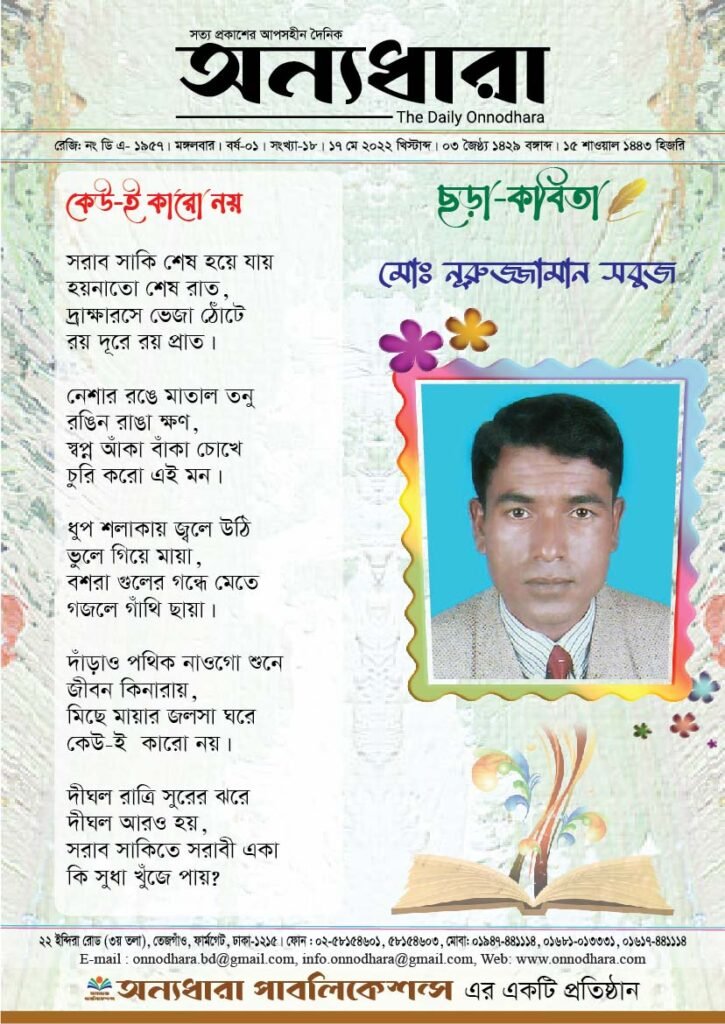 সত্য প্রকাশের আপসহীন দৈনিক
অন্যধারা
The Daily Onnodhara
রেজি: নং ডি এ- ১৯৫৭। মঙ্গলবার। বর্ষ-০১। সংখ্যা-১৮। ১৭ মে ২০২২ খিস্টাব্দ। ০৩ জ্যৈষ্ঠ্য ১৪২৯ বঙ্গাব্দ। ১৫ শাওয়াল ১৪৪৩ হিজরি
কেউ-ই কারো নয়
সরাব সাকি শেষ হয়ে যায়
হয়নাতো শেষ রাত,
দ্রাক্ষারসে ভেজা ঠোঁটে
রয় দূরে রয় প্রাত।
নেশার রঙে মাতাল তনু
রঙিন রাঙা ক্ষণ,
স্বপ্ন আঁকা বাঁকা চোখে
চুরি করো এই মন।
ধুপ শলাকায় জ্বলে উঠি
ভুলে গিয়ে মায়া,
বশরা গুলের গন্ধে মেতে
গজলে গাঁথি ছায়া।
দাঁড়াও পথিক নাওগো শুনে
জীবন কিনারায়,
মিছে মায়ার জলসা ঘরে
কেউ-ই কারো নয়।
দীঘল রাত্রি সুরের ঝরে
দীঘল আরও হয়,
সরাব সাকিতে সরাবী একা
কি সুধা খুঁজে পায়?
ছড়া-কবিতা
মোঃ নূরুজ্জামান সবুজ
২২ ইন্দিরা রোড (৩য় তলা), তেজগাঁও, ফার্মগেট, ঢাকা-১২১৫। ফোন : ০২-৫৮১৫৪৬০১, ৫৮১৫৪৬০৩, মোবা: ০১৯৪৭-৪৪১১১৪, ০১৬৮১-০১৩৩৩১, ০১৬১৭-৪৪১১১৪
E-mail : onnodhara.bd@gmail.com, info.onnodhara@gmail.com, Web: www.onnodhara.com
অন্যধারা পাবলিকেশন্স এর একটি প্রতিষ্ঠান